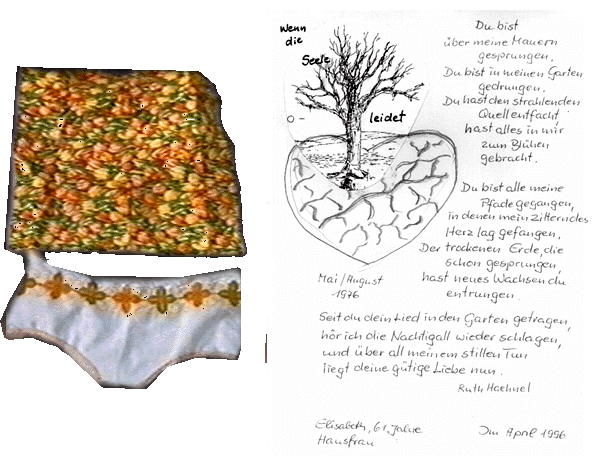 Wenn
die
Seele
leidet
Du bist
über meine Mauern
gesprungen.
Du bist in meinen Garten
gedrungen.
Du hast den strahlenden
Quell entfacht
hast alles in mir
zum Blühen
gebracht.
Du bist alle meine
Pfade gegangen,
in denen mein zitterndes
Herz lag gefangen.
Der trockenen Erde, die
schon gesprungen,
hast neues Wachsen du
entrungen.
Mai/August
1996
Seit du dein Lied in den Garten getragen,
hör ich die Nachtigall wieder schlagen,
und über all meinem stillen Tun
liegt deine gütige Liebe nun.
Ruth Haehnel
Elisabeth, 61 Jahre
Hausfrau
Im April 1996